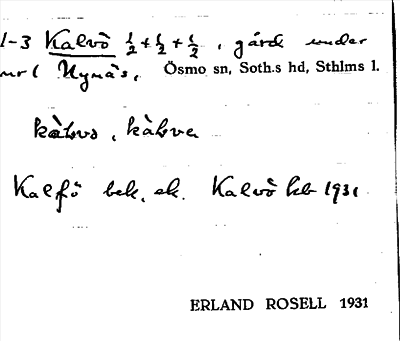 1-3 Kalvö ½ + ½ + ½, gård under
nr 1 Nynäs, Ösmo sn, Soth.s hd, Sthlms l.
kàlvo, kàlven
Kalfö bek. ek. Kalvö kb 1931
ERLAND ROSELL 1931